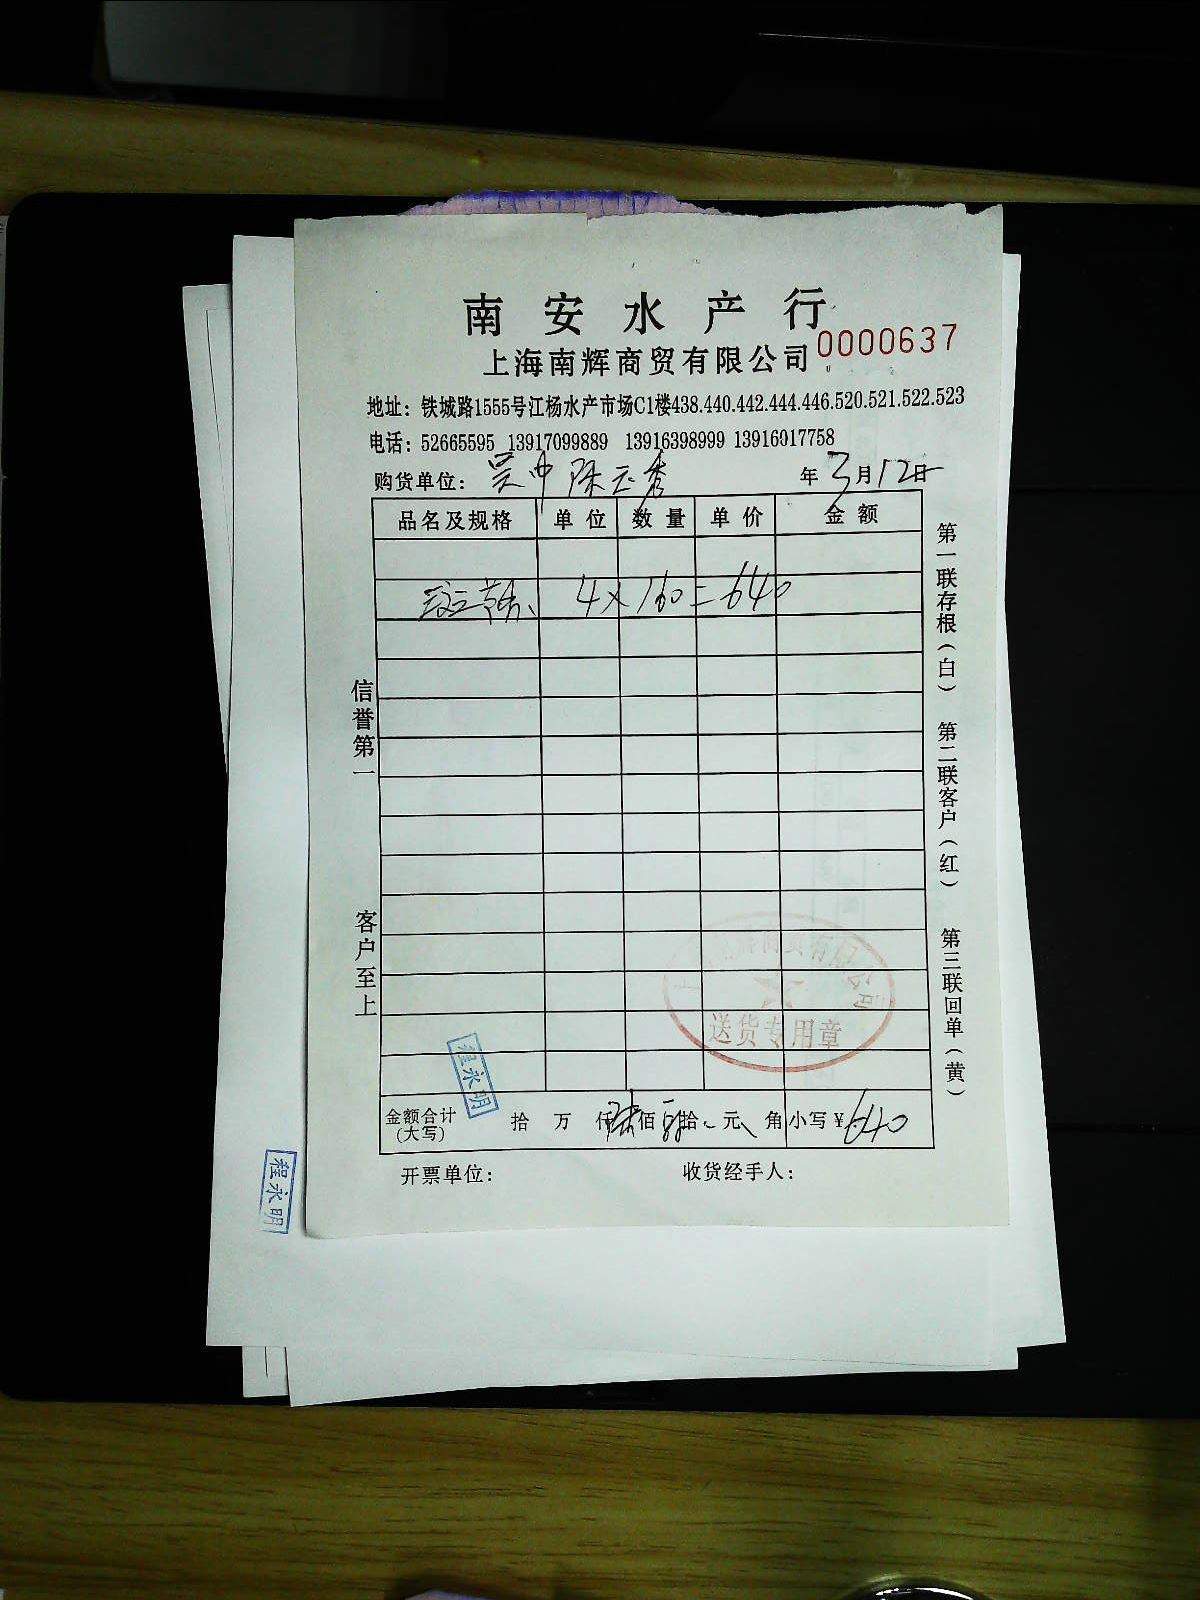 南安水产行
上海南辉商贸有限公司 0000637
地址：铁城路1555号江杨水产市场C1楼438.440.442.444.446.520.521.522.523
电话：52665595 13917099889 13916398999 13916017758
购货单位：吴中陈玉秀 年3月12日
品名及规格 单位 数量 单价 金额
4×160=640
信誉第一
客户至上
第一联存根（白）
第二联客户（红）
第三联回单（黄）
送货专用章
程永明
金额合计（大写） 拾 万 仟 陆佰 肆拾 元 角 小写¥640
开票单位： 收货经手人：
程永明